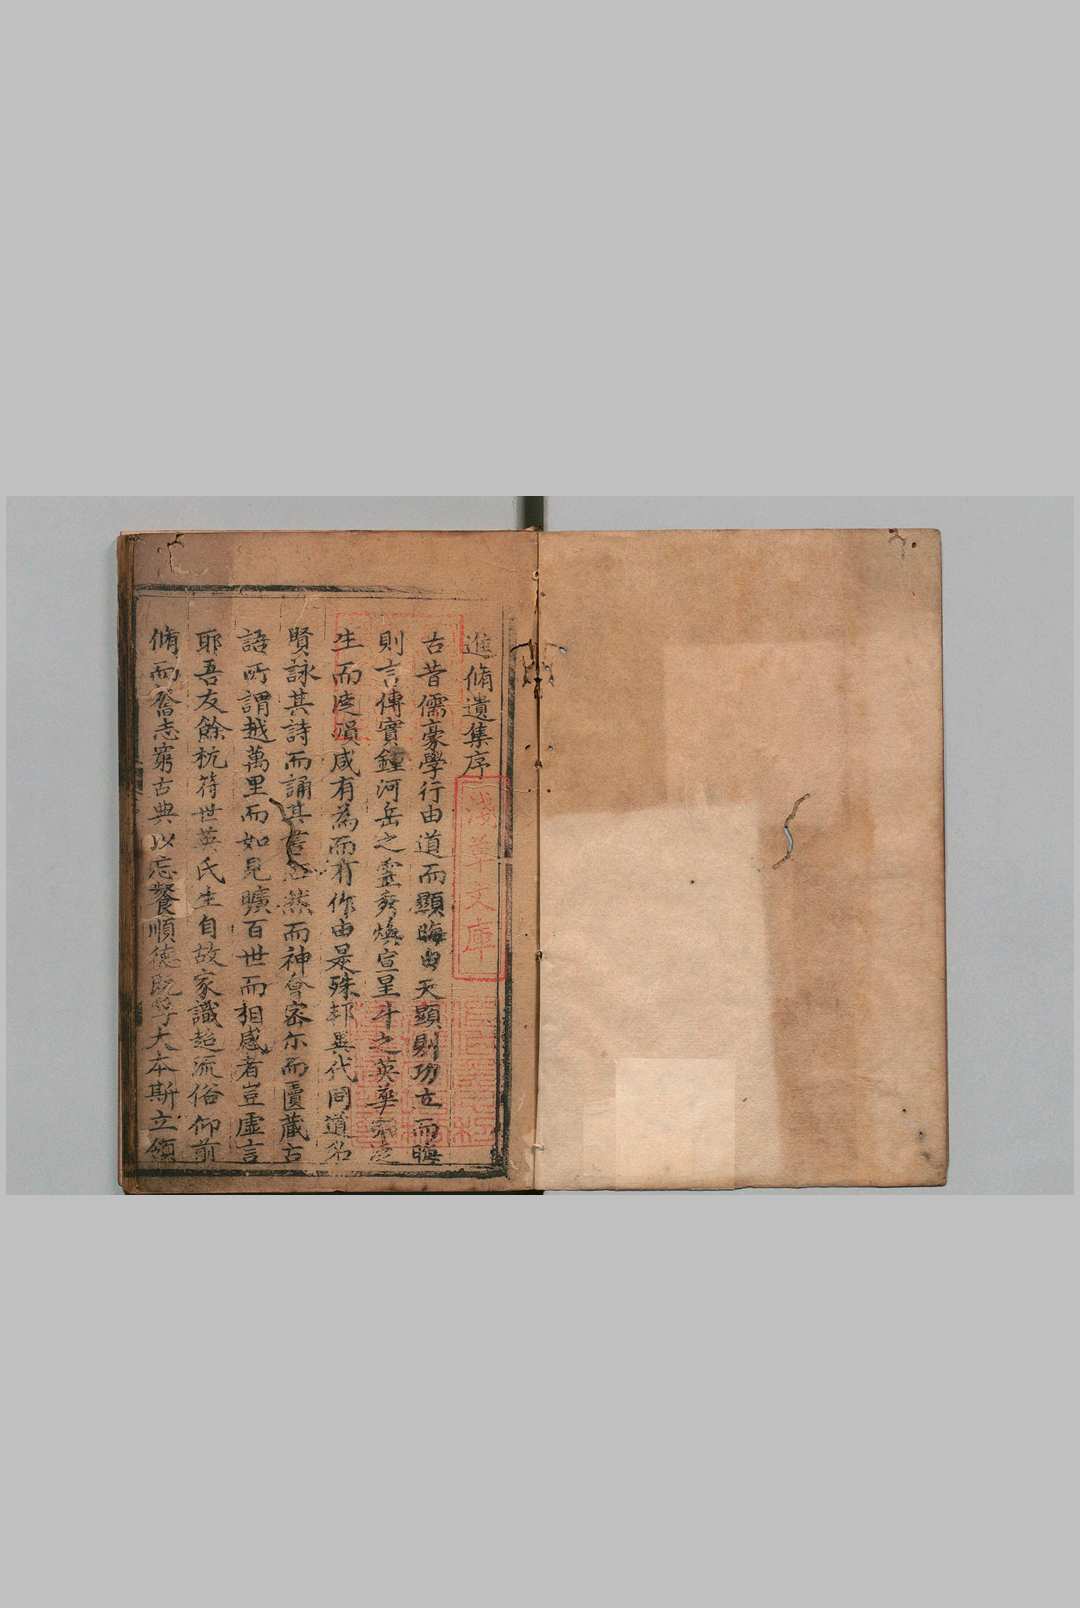 進脩遺集序
古昔儒豪學行由道而顯晦由天顯則功立而晦
則言傳實鍾河岳之靈秀煥宣星斗之英華
生而 咸有為而有作由是殊邦異代同道名
賢詠其詩而誦其書 然而神會密尓而匱藏古
語所謂越萬里而如見曠百世而相感者豈虛言
耶吾友餘杭符世英氏生自故家識超流俗仰前
脩而奮志窮古典以忘餐順德既孚大本斯立
淺草文庫